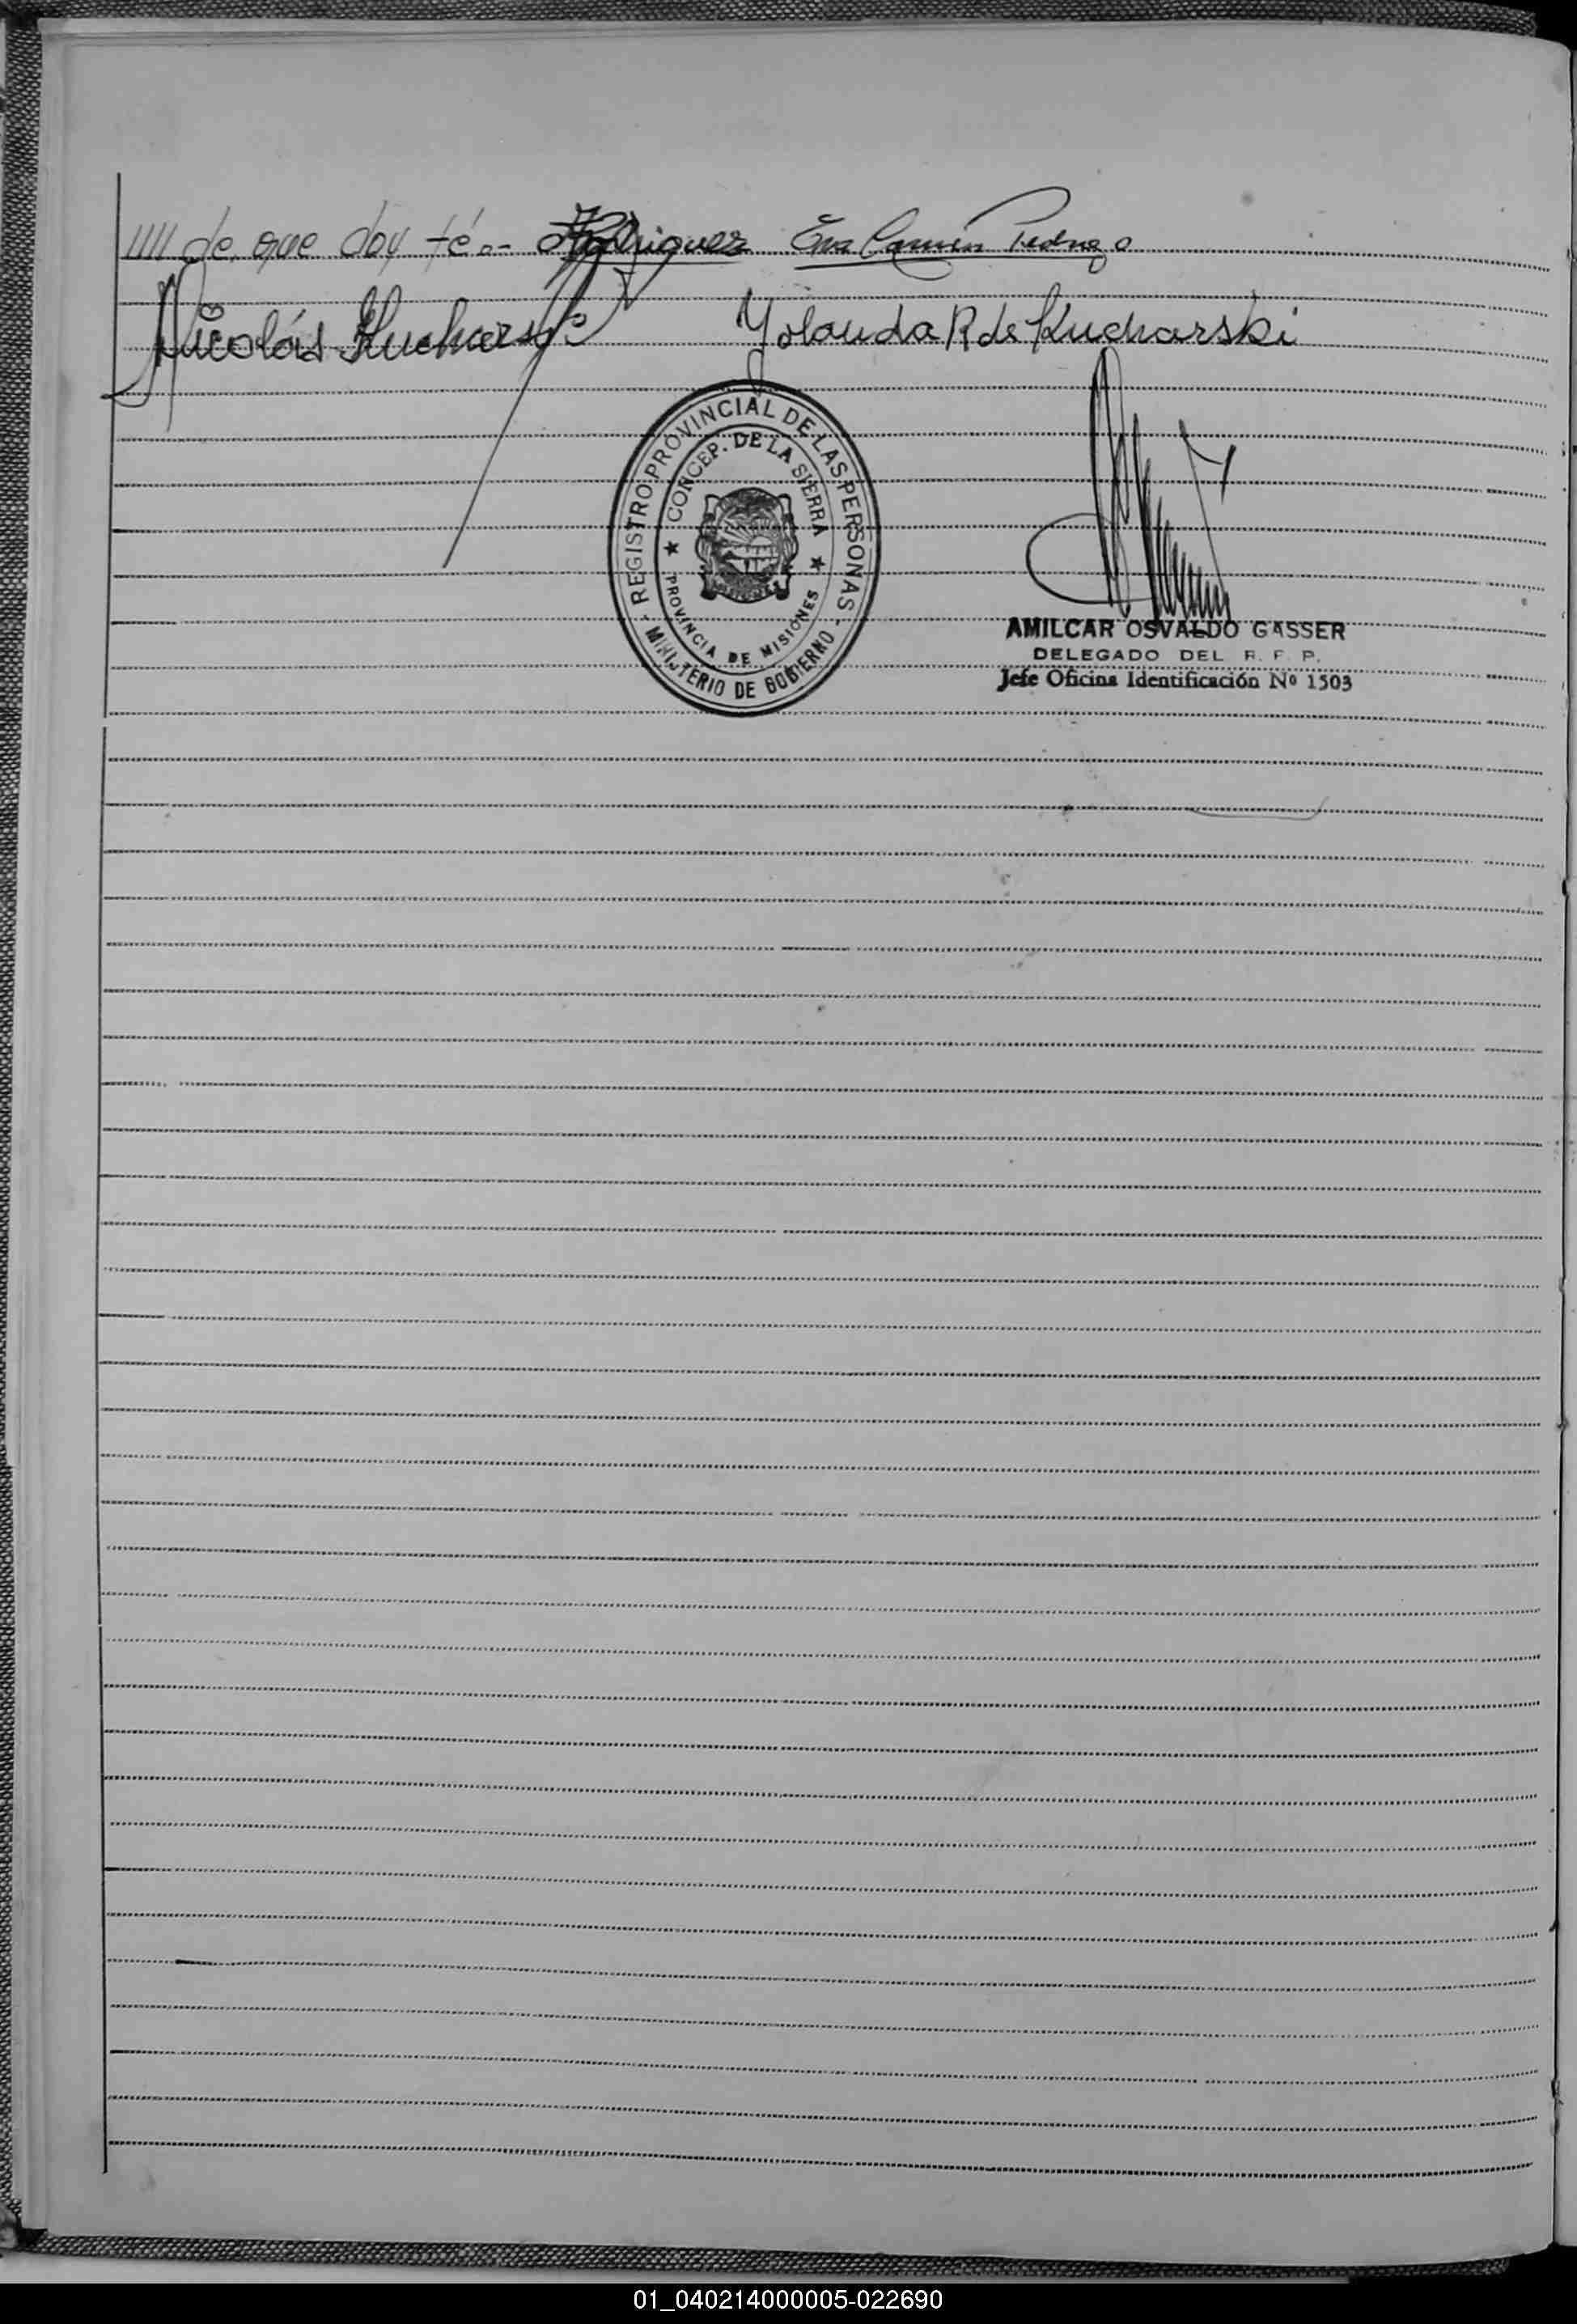 //// de que doy fé.- Rodriguez Eva Carmen Pedrozo
Nicolás Kucharski Yolanda R de Kucharski
REGISTRO PROVINCIAL DE LAS PERSONAS
- MINISTERIO DE GOBIERNO -
★ CONCEP. DE LA SIERRA ★
PROVINCIA DE MISIONES
MISIONES
AMILCAR OSVALDO GASSER
DELEGADO DEL R. P. P.
Jefe Oficina Identificación Nº 1503
01_040214000005-022690